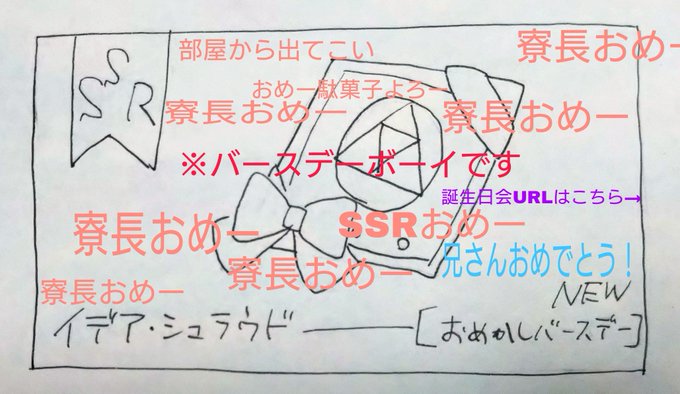 SSR
部屋から出てこい
寮長おめー
おめー駄菓子よろー
寮長おめー
寮長おめー
※バースデーボーイです
誕生日会URLはこちら→
寮長おめー
SSRおめー
兄さんおめでとう!
寮長おめー
寮長おめー
NEW
イデア・シュラウド
[おめかしバースデー]